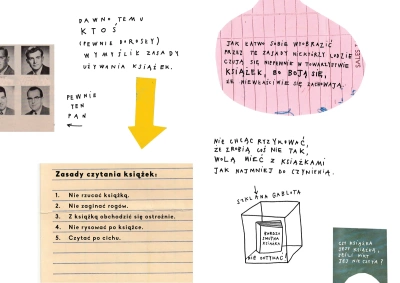 DAWNO TEMU
KTOŚ
(PEWNIE DOROSŁY)
WYMYŚLIŁ ZASADY
UŻYWANIA KSIĄŻEK.
PEWNIE
TEN
PAN
Zasady czytania książek:
1. Nie rzucać książką.
2. Nie zaginać rogów.
3. Z książką obchodzić się ostrożnie.
4. Nie rysować po książce.
5. Czytać po cichu.
JAK ŁATWO SOBIE WYOBRAZIĆ
PRZEZ TE ZASADY NIEKTÓRZY LUDZIE
CZUJĄ SIĘ NIEPEWNIE W TOWARZYSTWIE
KSIĄŻEK, BO BOJĄ SIĘ,
ŻE NIEWŁAŚCIWIE SIĘ ZACHOWAJĄ.
SALES
NIE CHCĄC RYZYKOWAĆ,
ŻE ZROBIĄ COŚ NIE TAK,
WOLĄ MIEĆ Z KSIĄŻKAMI
JAK NAJMNIEJ DO CZYNIENIA.
SZKLANA GABLOTA
BARDZO
SMUTNA
KSIĄŻKA
NIE DOTYKAĆ!
CZY KSIĄŻKA
JEST KSIĄŻKĄ,
JEŚLI NIKT
JEJ NIE CZYTA?